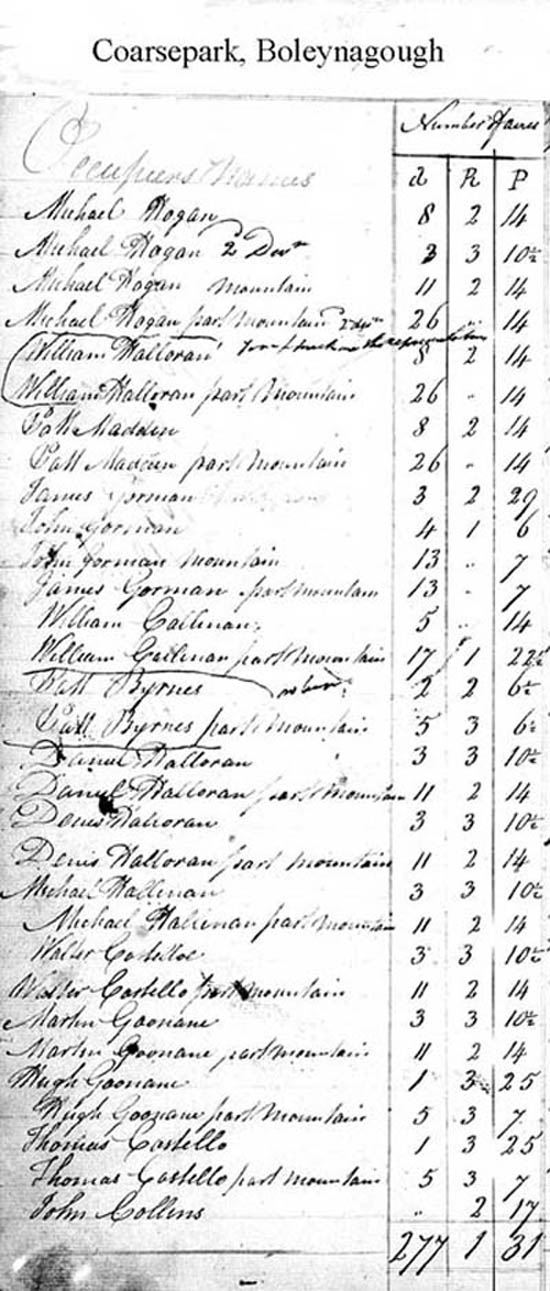 Coarsepark, Boleynagough
Number of acres
Occupiers Names A R P
Michael Hogan 8 2 14
Michael Hogan 2 Devn 3 3 10½
Michael Hogan mountain 11 2 14
Michael Hogan part Mountain 26 .. 14
William Halloran 8 2 14
William Halloran part Mountain 26 .. 14
Patt Madden 8 2 14
Patt Madden part Mountain 26 .. 14
James Gorman 3 2 29
John Gorman 4 1 6
John Gorman mountain 13 .. 7
James Gorman part mountain 13 .. 7
William Callinan 5 .. 14
William Callinan part Mountain 17 1 22½
Patt Byrnes 2 2 6½
Patt Byrnes part Mountain 5 3 6½
Daniel Halloran 3 3 10½
Daniel Halloran part Mountain 11 2 14
Denis Halloran 3 3 10½
Denis Halloran part mountain 11 2 14
Michael Hallinan 3 3 10½
Michael Hallinan part Mountain 11 2 14
Walter Costelloe 3 3 10½
Walter Costello part mountain 11 2 14
Martin Goonane 3 3 10½
Martin Goonane part mountain 11 2 14
Hugh Goonane 1 3 25
Hugh Goonane part Mountain 5 3 7
Thomas Costello 1 3 25
Thomas Costello part mountain 5 3 7
John Collens .. 2 17
277 1 31